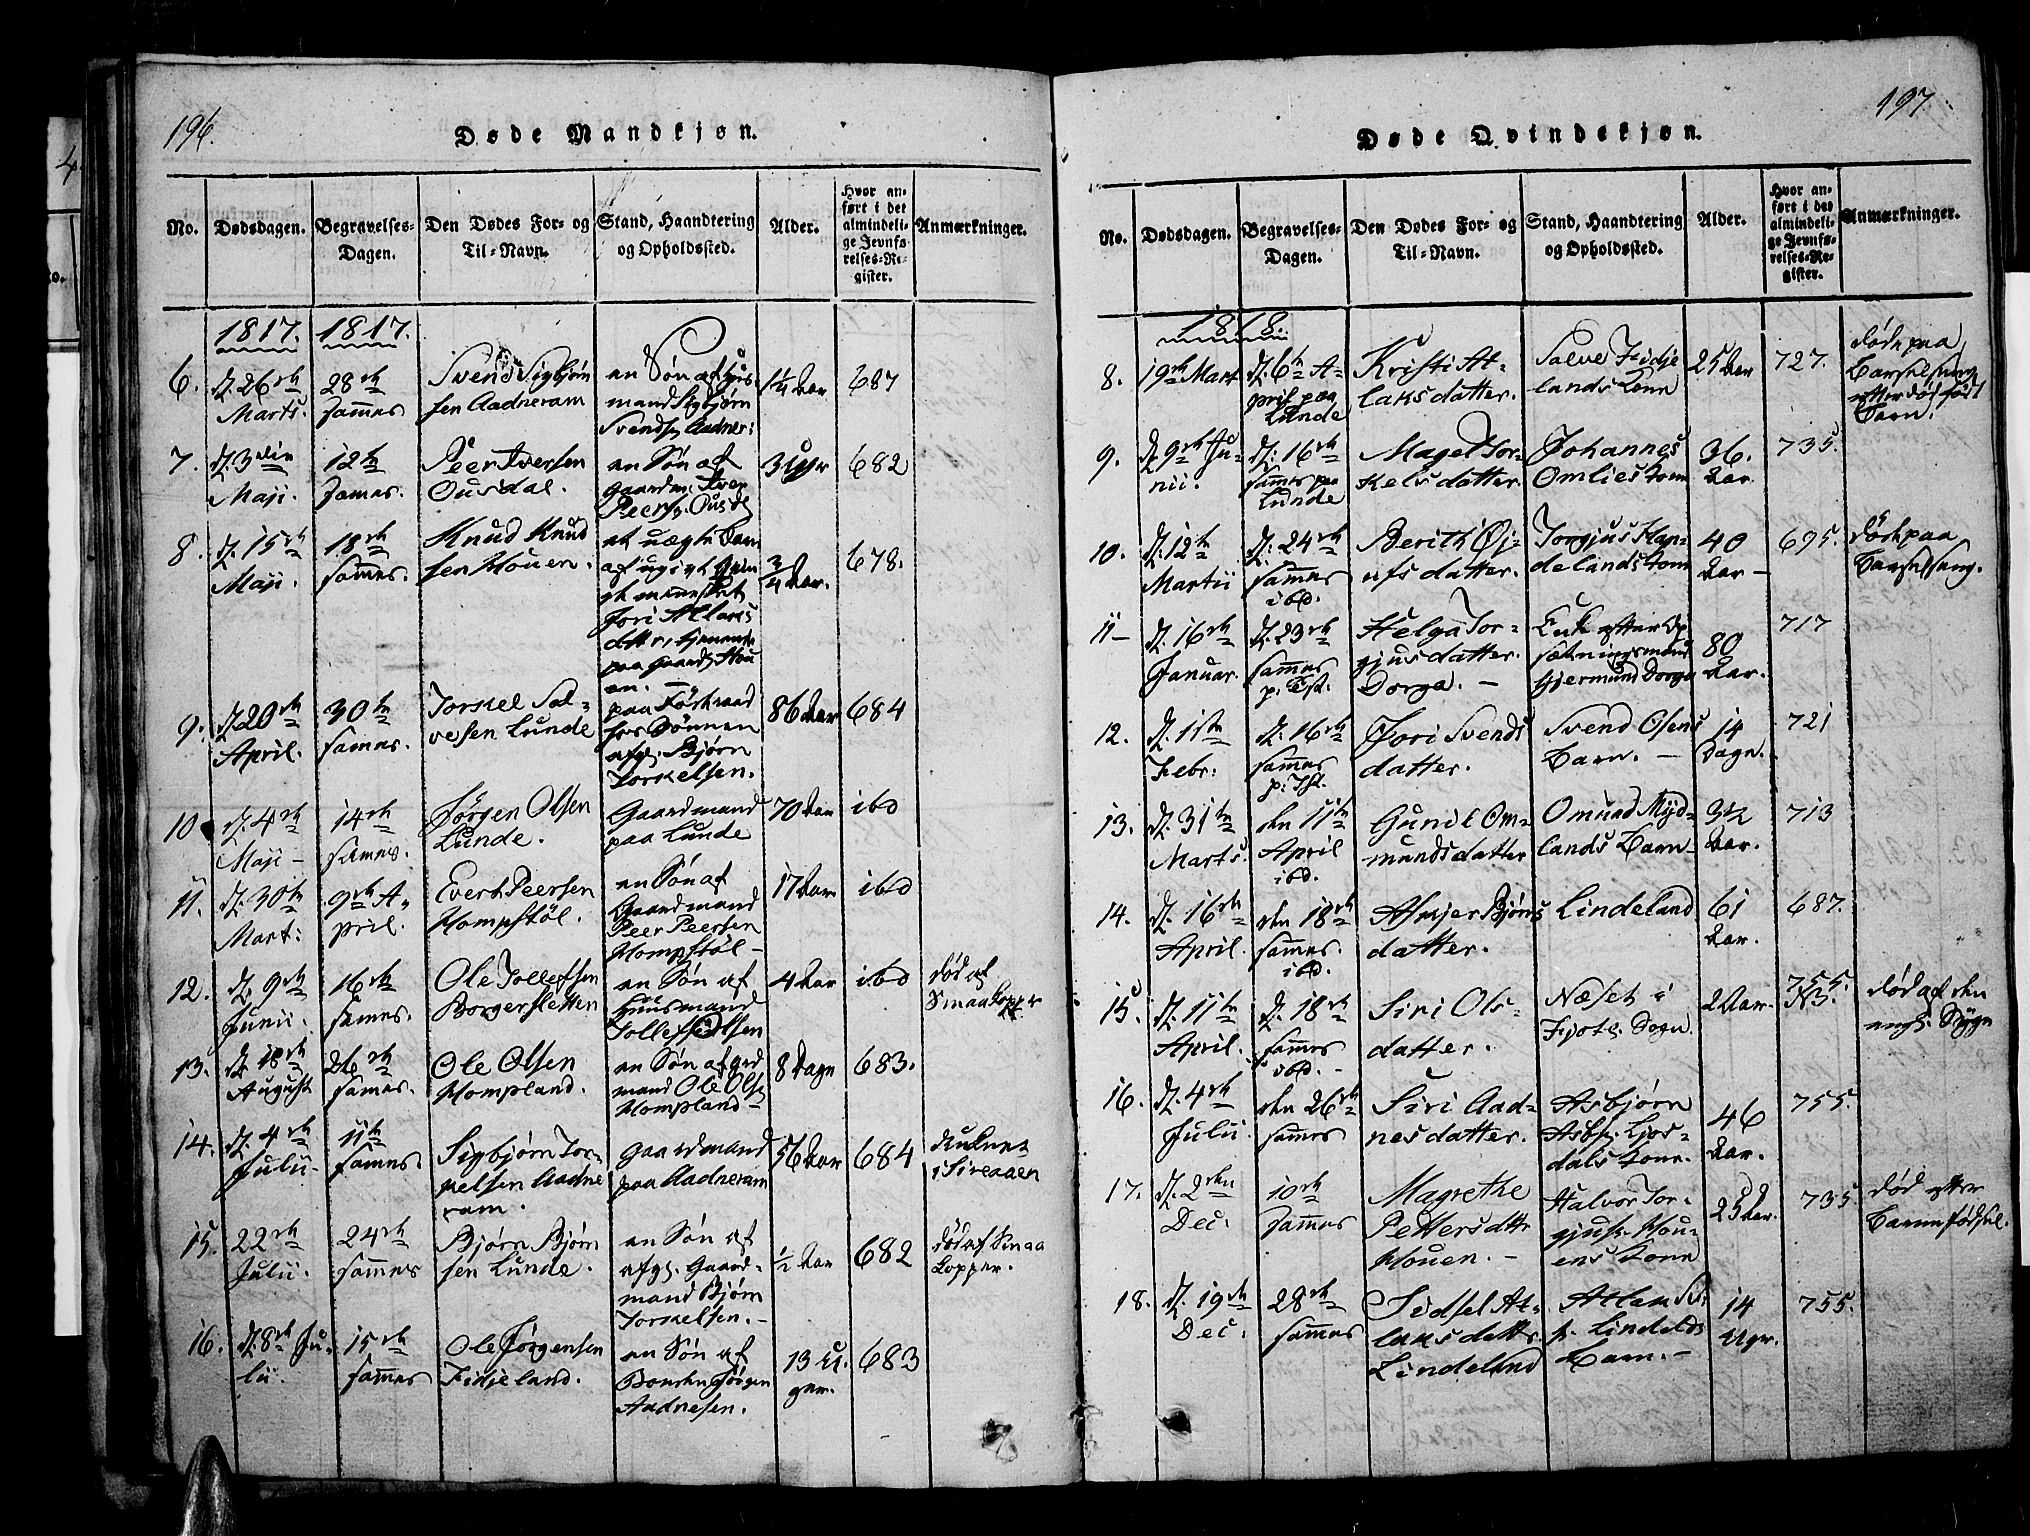 196.
Døde Mandkjøn.
No.
Dødsdagen.
Begravelses-
Dagen.
Den Dødes For- og
Til-Navn.
Stand, Haandtering
og Opholdssted.
Alder.
Hvor an-
ført i det
almindeli-
ge Jevnfø-
relses-Re-
gister.
Anmærkninger.
1817. 1817.
6.
d. 26de
Marts.
28de
sammes
Svend Sigbjørn
sen Aadneram
en Søn af Huus
mand Sigbjørn
Svends. Aadner:
1¼ Aar
687
7.
d. 3die
Maji.
12te
sames.
Peer Iversen
Ousdal.
en Søn af
Gaardm. Iver
Peers. Ousd
3 Uger
682
8.
d. 15de
Maji.
18de
sammes.
Knud Knud
sen Houen.
et uægte Barn
af ugivt
Jori Atlaks
datter, tjenende
paa Gaard Hou
en. —
¾ Aar.
678.
9.
d. 20de
April.
30te
sammes.
Torkel Sal-
vesen Lunde
paa Føderaad
hos Sønnen
afg. Bjørn
Torkelsen.
86 Aar
684
10
d. 4de
Maji -
14de
sames.
Jørgen Olsen
Lunde.
Gaardmand
paa Lunde
70 Aar
ibd
11.
d. 30te
Mart:
9de A-
pril.
Evert Peersen
Hompstøl.
en Søn af
Gaardmand
Peer Peersen
Hompstøl -
17 Aar
ibd
12.
d. 9de
Junii.
16de
sames.
Ole Tollefsen
Borgersletten
en Søn af
Huusmand
Tollef Olsen
4 Aar
ibd
død af
Smaakopper
13.
d. 18de
August
26de
sames.
Ole Olsen
Hompland.
en Søn af grd
mand Ole Ols
Hompland -
8 Dage
683.
14.
d. 4de
Julii -
11te
sames
Sigbjørn Tor-
kelsen Aadne
ram.
gaardmand
paa Aadneram
56 Aar
684
druknet
i Sireaaen
15.
22de
Julii.
24de
sammes
Bjørn Bjørn
sen Lunde.
en Søn af
afg. Gaard-
mand Bjørn
Torkelsen. -
½ Aar
682
død af Smaa
kopper.
16.
d. 8de Ju-
lii.
15de
sammes
Ole Jørgensen
Fidjeland.
en Søn af
Bonden Jørgen
Aadnesen.
13 U-
ger.
683
197.
Døde Qvindekjøn.
No.
Dødsdagen.
Begravelses-
Dagen.
Den Dødes For- og
Til-Navn.
Stand, Haandtering
og Opholdssted.
Alder.
Hvor an-
ført i det
almindeli-
ge Jevnfø-
relses-Re-
gister.
Anmærkninger.
1818.
8.
19de Mart
d. 6te A-
pril paa
Lunde
Kristi At-
laksdatter.
Salve Fidje
lands Kone
25 Aar
727.
døde paa
Barselseng
efter dødfødt
Barn.
9.
d. 9de Ju-
nii.
d. 16de
sames paa
Lunde
Magel Tor-
kelsdatter.
Johannes
Omlies Kone
36.
Aar.
735.
10.
d. 12te
Martii
d: 24de
sammes
ibd.
Berith Øj-
ufsdatter.
Torgjus Han-
delands Kone
40
Aar -
695.
døde paa
Barselseng.
11 -
d. 16de
Januar.
d. 23de
sammes
p. Tst.
Helga Tor-
gjusdatter
Dorga. -
Enke efter Op
sætningsmand
Gjermund Dorga
80
Aar.
717
12.
d. 1ste
Febr:
d. 16de
sammes
p. Tst.
Jori Svends
datter.
Svend Olsens
Barn. -
14
Dage.
721
13.
d. 31te
Marts.
den 11te
April
ibd.
Gunil Om-
mundsdatter
Omund Myd-
lands Barn -
3½
Aar.
713
14.
d. 16de
April.
den 18de
sammes
ibd.
Asgjer Bjørns
datter.
Lindeland
61
Aar.
687.
15.
d. 11te
April.
d. 18de
sammes
ibd. -
Siri Ols-
datter.
Næset i
Fjote: Sogn.
2 Aar.
755.
NB.
død af den
engl. Syge
16.
d. 4de
Julii
den 26de
sammes
Siri Aad-
nesdatter.
Asbjørn
Asbj. Ljos-
dals Kone.
46
Aar.
755.
17.
d. 2den
Dec:
10de
sammes
Magrethe
Pettersdttr
Houen. -
Halvor Tor-
gjus. Hou-
ens Kone
25 Aar.
735
død efter
Barnefødsel.
18.
d. 19de
Dec:
28de
sammes
Sidsel At-
laksdattr
Lindeland
Atlak
Lindelds
Barn. -
14
Uger.
755.